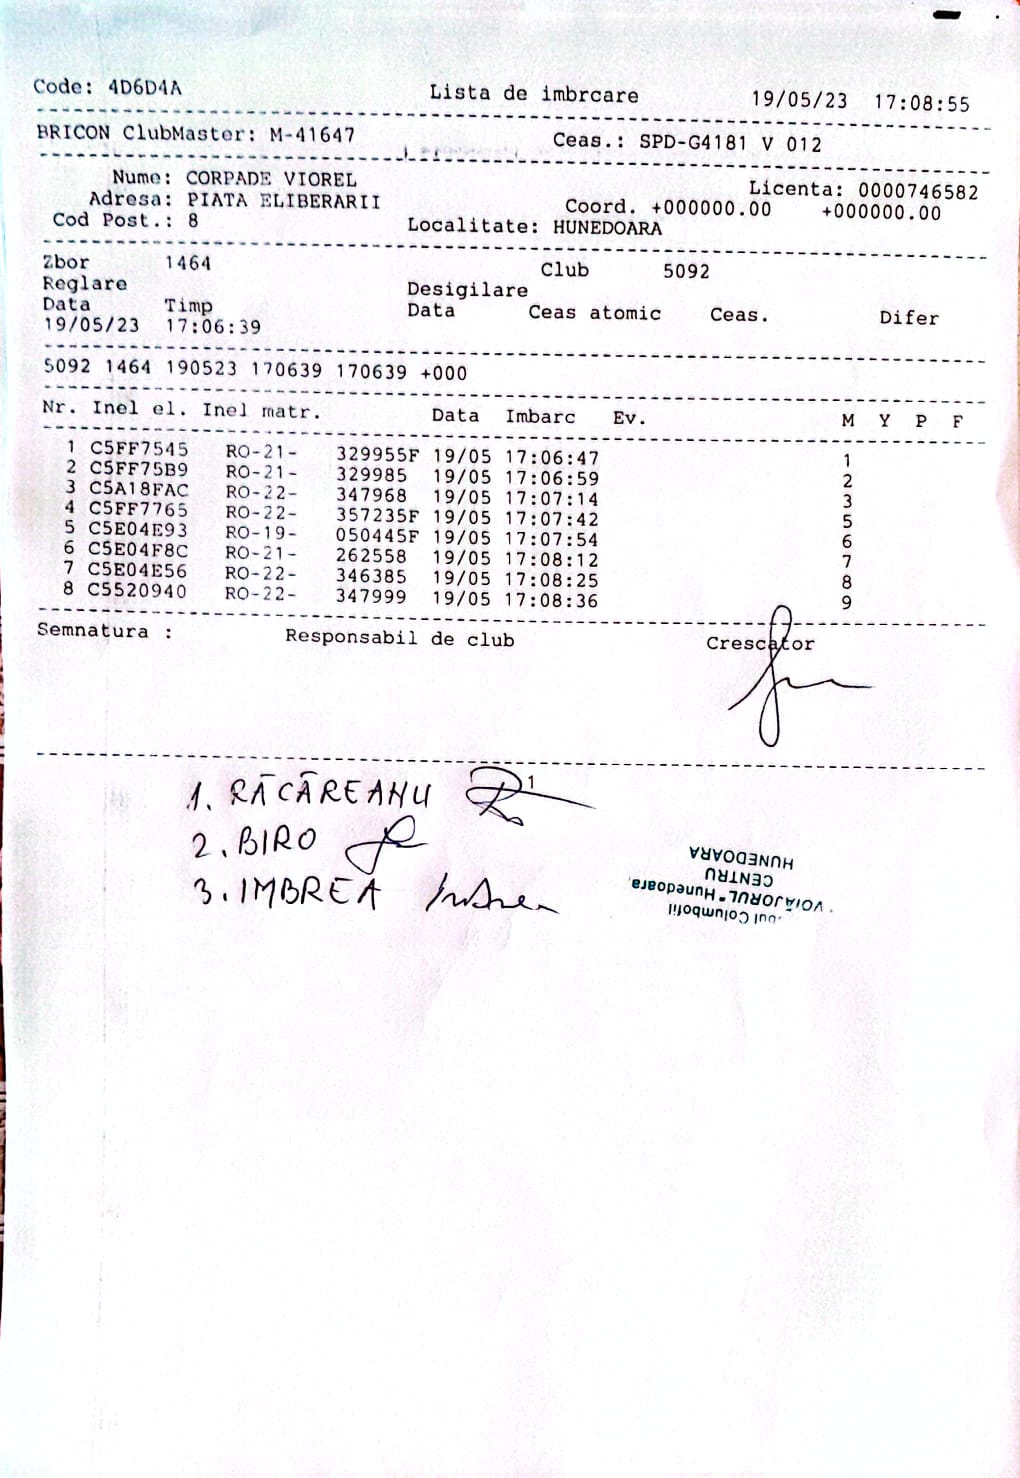 Code: 4D6D4A Lista de imbrcare 19/05/23 17:08:55
BRICON ClubMaster: M-41647 Ceas.: SPD-G4181 V 012
Nume: CORPADE VIOREL Licenta: 0000746582
Adresa: PIATA ELIBERARII Coord. +000000.00 +000000.00
Cod Post.: 8 Localitate: HUNEDOARA
Zbor 1464 Club 5092
Reglare Desigilare
Data Timp Data Ceas atomic Ceas. Difer
19/05/23 17:06:39
5092 1464 190523 170639 170639 +000
Nr. Inel el. Inel matr. Data Imbarc Ev. M Y P F
1 C5FF7545 RO-21- 329955F 19/05 17:06:47 1
2 C5FF75B9 RO-21- 329985 19/05 17:06:59 2
3 C5A18FAC RO-22- 347968 19/05 17:07:14 3
4 C5FF7765 RO-22- 357235F 19/05 17:07:42 5
5 C5E04E93 RO-19- 050445F 19/05 17:07:54 6
6 C5E04F8C RO-21- 262558 19/05 17:08:12 7
7 C5E04E56 RO-22- 346385 19/05 17:08:25 8
8 C5520940 RO-22- 347999 19/05 17:08:36 9
Semnatura : Responsabil de club Crescator
1
1. RĂCĂREANU
2. BIRO
3. IMBREA
Columbofil
"VOIAJORUL" Hunedoara
CENTRU
HUNEDOARA